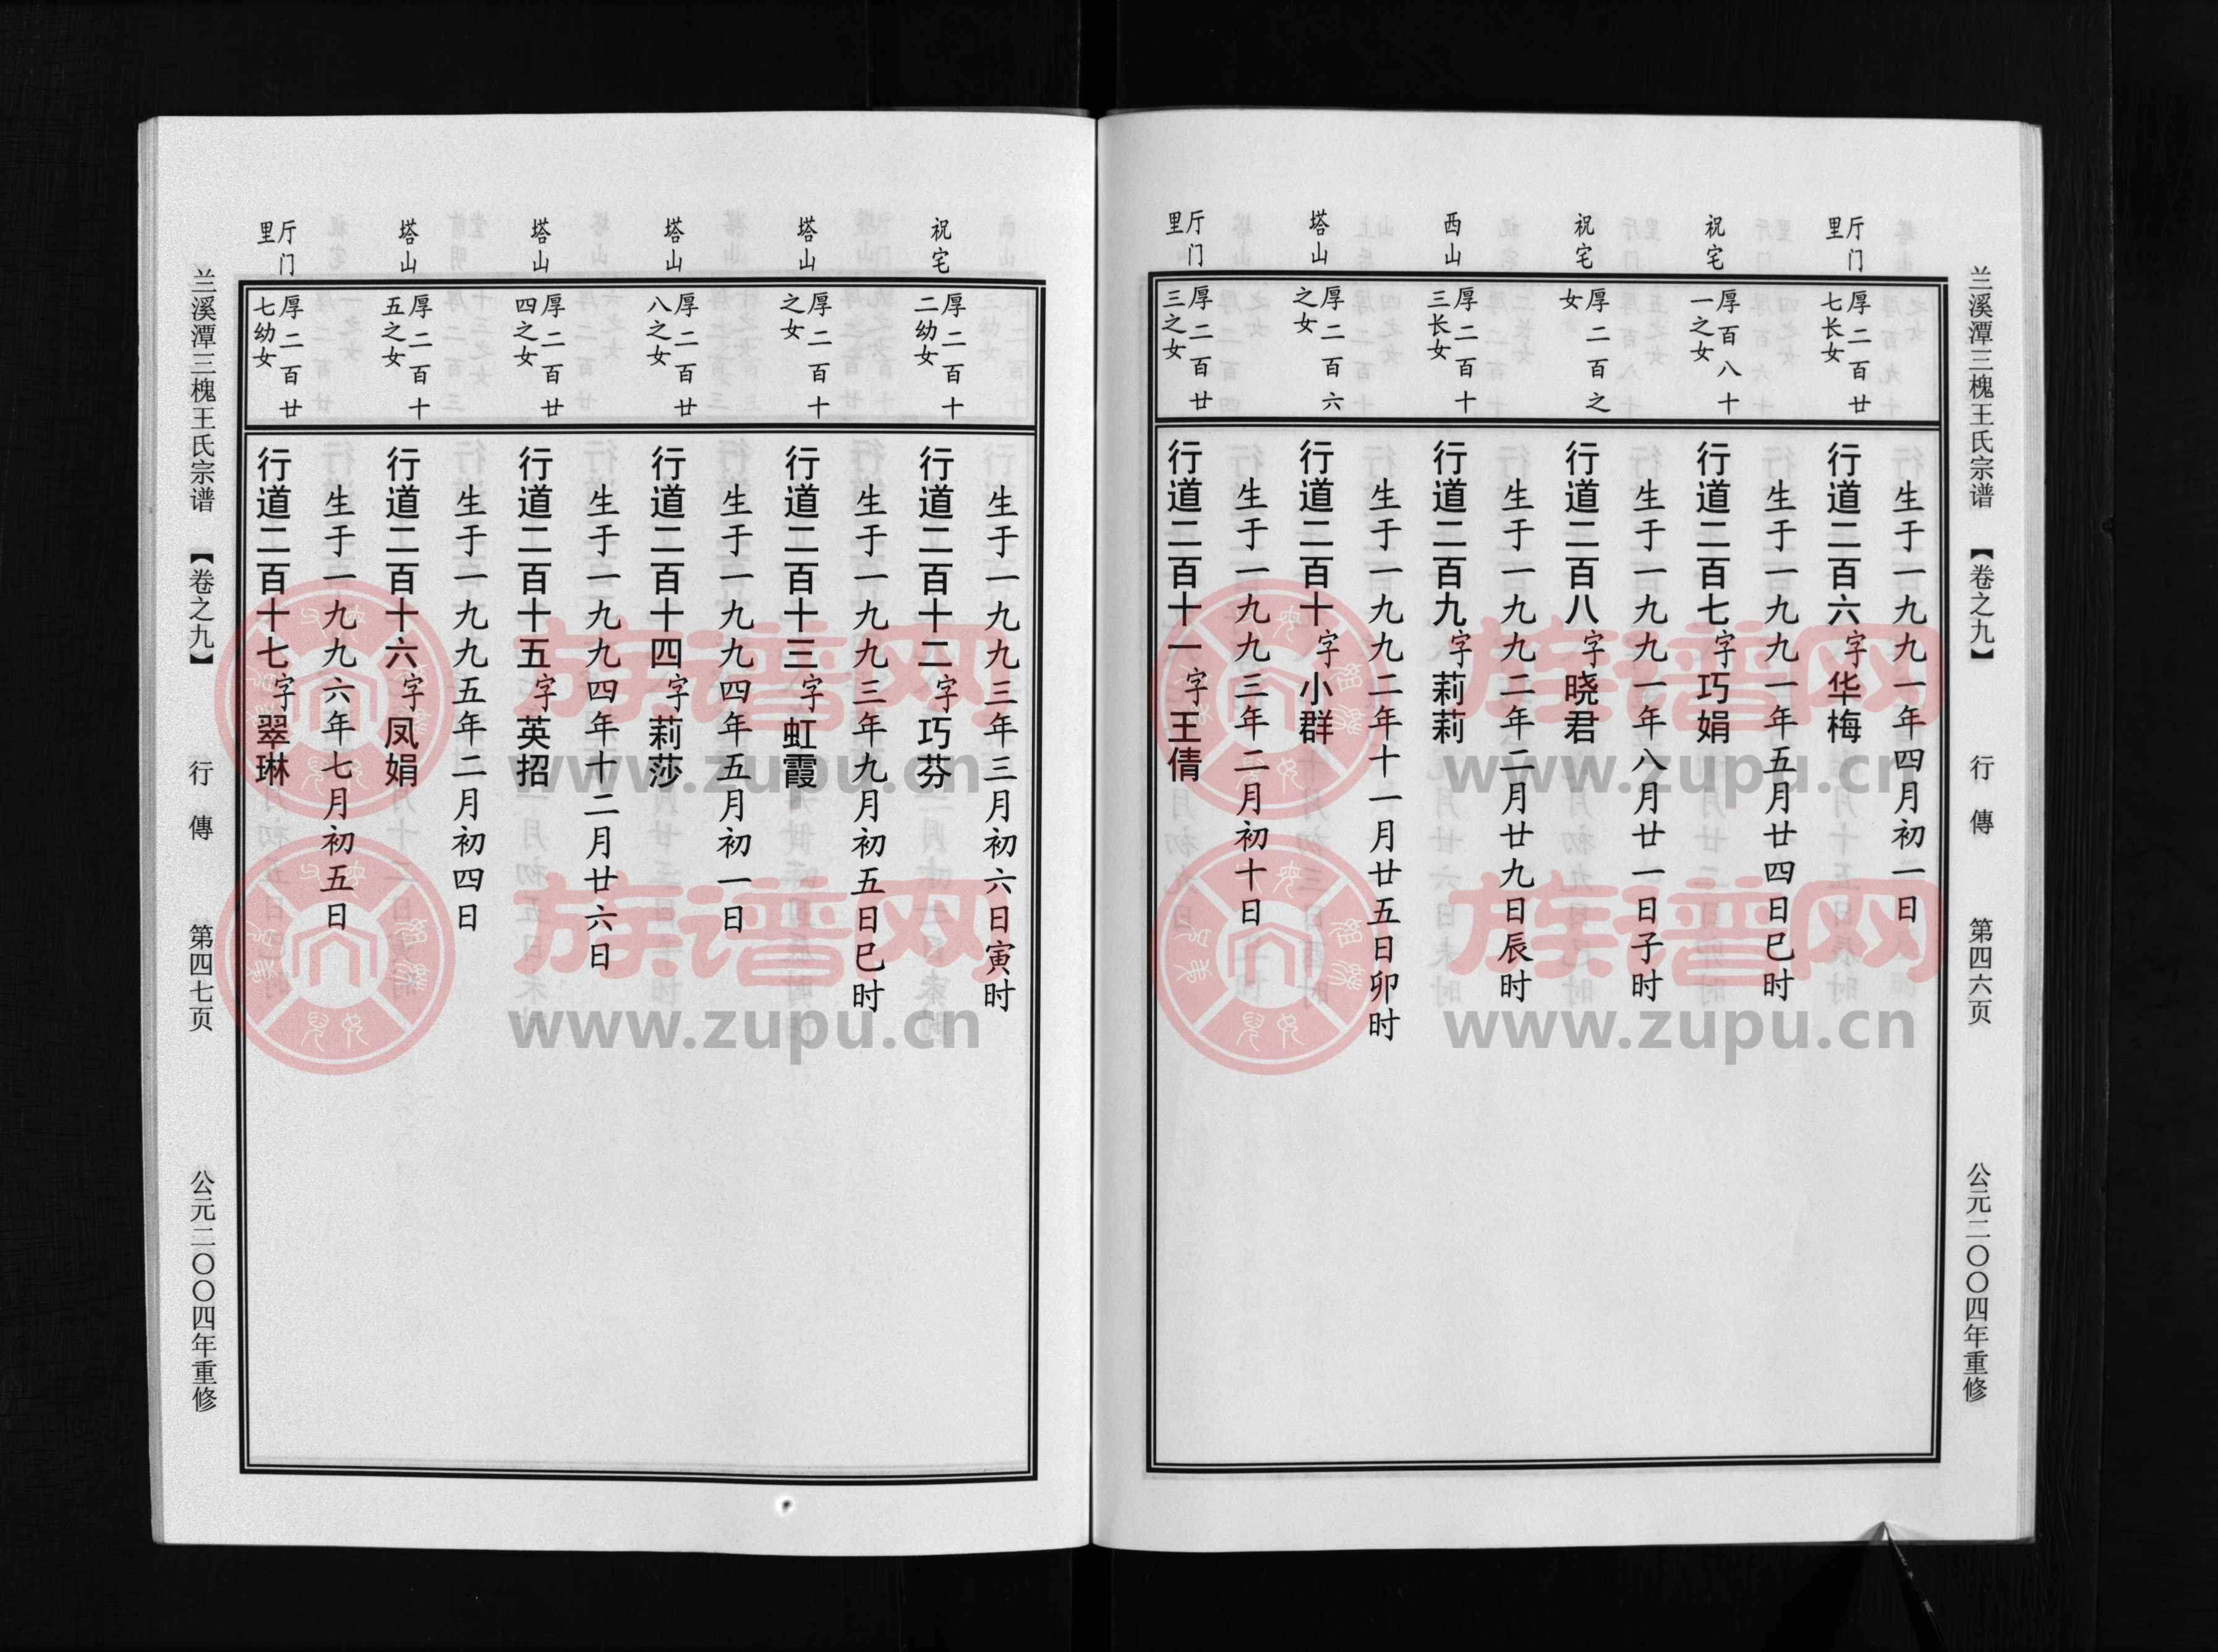 兰溪潭三槐王氏宗谱 【卷之九】 行傳 第四六页 公元二〇〇四年重修
生于一九九一年四月初一日
厅门
里
厚二百廿
七长女
行道二百六字华梅
生于一九九一年五月廿四日巳时
祝宅
厚百八十
一之女
行道二百七字巧娟
生于一九九一年八月廿一日子时
祝宅
厚二百之
女
行道二百八字晓君
生于一九九二年二月廿九日辰时
西山
厚二百十
三长女
行道二百九字莉莉
生于一九九二年十一月廿五日卯时
塔山
厚二百六
之女
行道二百十字小群
生于一九九三年二月初十日
厅门
里
厚二百廿
三之女
行道二百十一字王倩
生于一九九三年三月初六日寅时
祝宅
厚二百十
二幼女
行道二百十二字巧芬
生于一九九三年九月初五日巳时
塔山
厚二百十
之女
行道二百十三字虹霞
生于一九九四年五月初一日
塔山
厚二百廿
八之女
行道二百十四字莉莎
生于一九九四年十二月廿六日
塔山
厚二百廿
四之女
行道二百十五字英招
生于一九九五年二月初四日
塔山
厚二百十
五之女
行道二百十六字凤娟
生于一九九六年七月初五日
厅门
里
厚二百廿
七幼女
行道二百十七字翠琳
兰溪潭三槐王氏宗谱 【卷之九】 行傳 第四七页 公元二〇〇四年重修
族谱网
www.zupu.cn
族谱网
www.zupu.cn
族谱网
www.zupu.cn
族谱网
www.zupu.cn